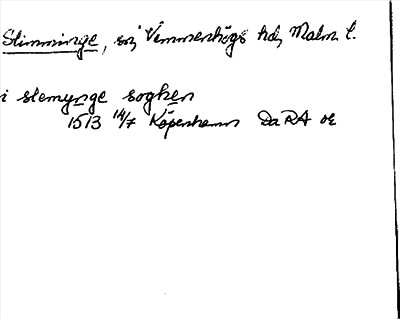 Slimminge, sn; Vemmenhögs hd, Malm. l.
i slemynge sogken
1513 14/7 Köpenhamn DaRA or